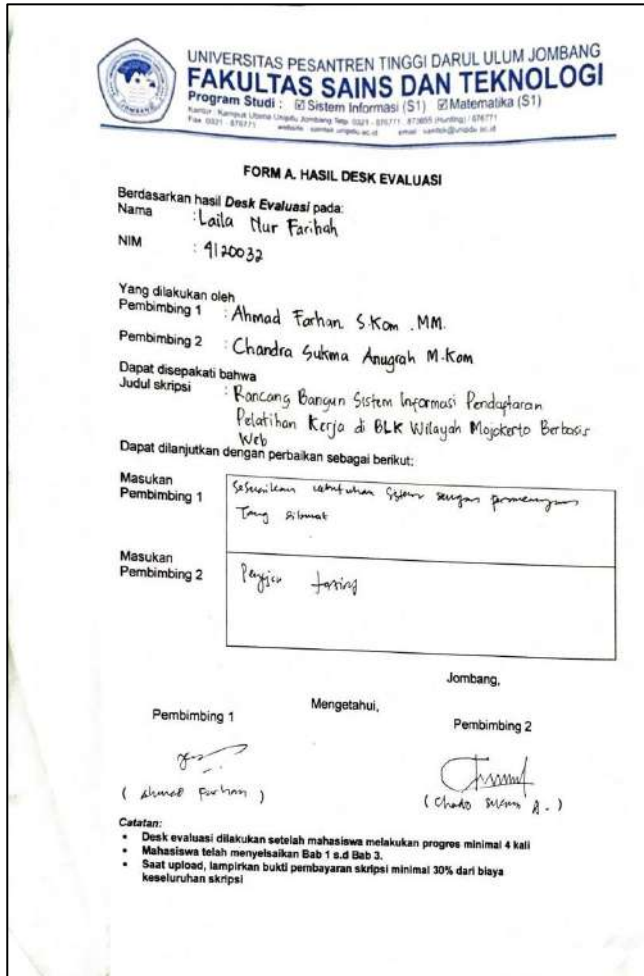 UNIVERSITAS PESANTREN TINGGI DARUL ULUM JOMBANG
FAKULTAS SAINS DAN TEKNOLOGI
Program Studi : ☑ Sistem Informasi (S1) ☑ Matematika (S1)
Kantor : Kampus Utama Unipdu Jombang Telp. 0321 - 876771 , 873655 (Hunting) / 876771
Fax 0321 - 876771 website : saintek.unipdu.ac.id email : saintek@unipdu.ac.id
FORM A. HASIL DESK EVALUASI
Berdasarkan hasil Desk Evaluasi pada:
Nama : Laila Nur Farihah
NIM : 4120032
Yang dilakukan oleh
Pembimbing 1 : Ahmad Farhan. S.Kom .MM.
Pembimbing 2 : Chandra Sukma Anugrah M.Kom
Dapat disepakati bahwa
Judul skripsi : Rancang Bangun Sistem Informasi Pendaftaran
Pelatihan Kerja di BLK Wilayah Mojokerto Berbasis
Web
Dapat dilanjutkan dengan perbaikan sebagai berikut:
Masukan
Pembimbing 1
Sesuaikan kebutuhan sistem dengan
yang dibuat
Masukan
Pembimbing 2
Jombang,
Mengetahui,
Pembimbing 1 Pembimbing 2
( Ahmad Farhan )
Catatan:
• Desk evaluasi dilakukan setelah mahasiswa melakukan progres minimal 4 kali
• Mahasiswa telah menyelsaikan Bab 1 s.d Bab 3.
• Saat upload, lampirkan bukti pembayaran skripsi minimal 30% dari biaya
keseluruhan skripsi